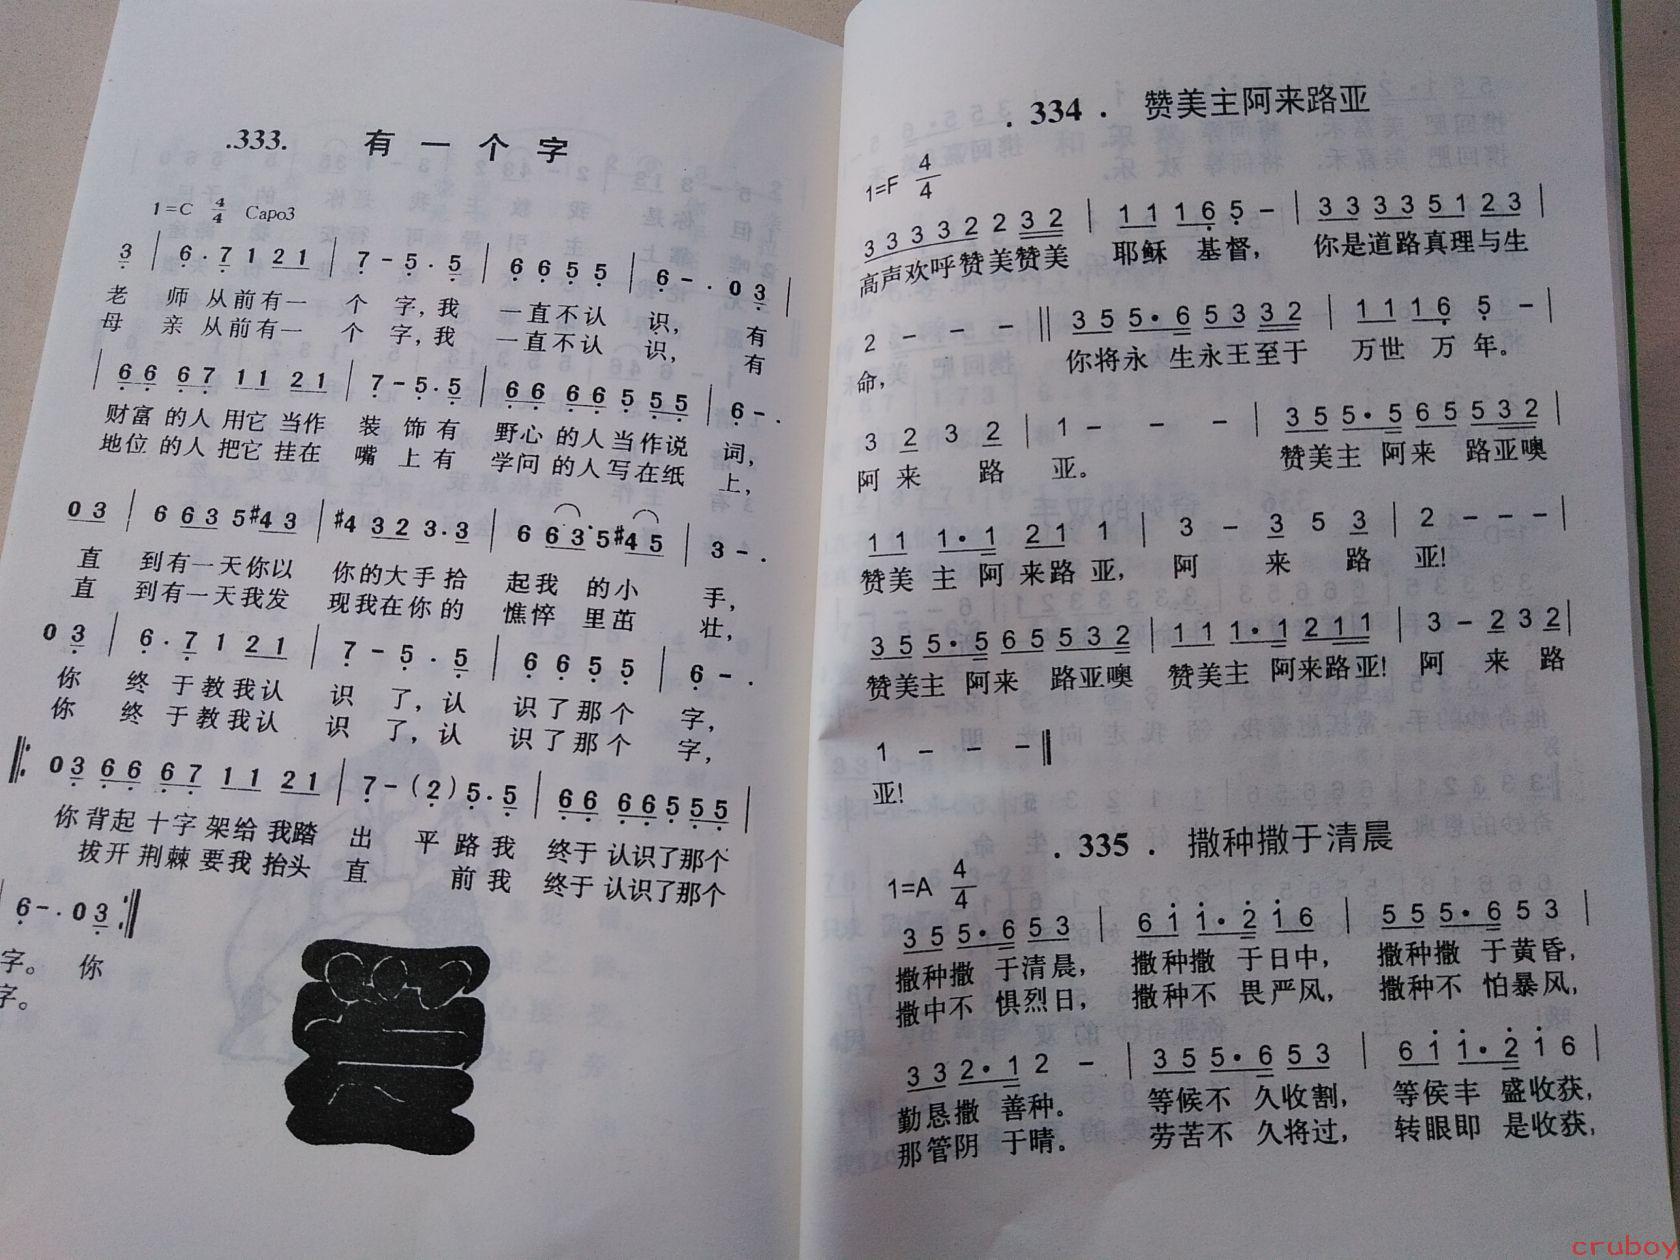 .333. 有一个字
1=C 4/4 Capo3
3 | 6·7 1 21 | 7-5·5 | 6 6 5 5 | 6-·03 |
老 师从前有一 个 字,我 一直不认 识, 有
母 亲从前有一 个 字,我 一直不认 识, 有
| 66 67 11 21 | 7-5·5 | 66 66 5 55 | 6-·
财富的人用它当作 装 饰有 野心的人当作说 词,
地位的人把它挂在 嘴 上有 学问的人写在纸 上,
03 | 6 63 5#43 | #4 32 3·3 | 6 63·5#45 | 3-·
直 到有一天你以 你的大手拾 起我 的小 手,
直 到有一天我发 现我在你的 憔悴 里茁 壮,
03 | 6·7 1 21 | 7-5·5 | 6 6 5 5 | 6-·
你 终 于教我认 识 了,认 识了那个 字,
你 终 于教我认 识 了,认 识了那个 字,
‖: 03 66 67 11 21 | 7-(2)5·5 | 66 66 5 55 |
你背起十字架给我踏 出 平路我 终于认识了那个
拔开荆棘要我抬头 直 前我 终于认识了那个
6-·03 :‖
字。 你
字。
.334. 赞美主阿来路亚
1=F 4/4
3 3 3 3 2 2 3 2 | 1 1 1 6 5 - | 3 3 3 3 5 1 2 3 |
高声欢呼赞美赞美 耶稣 基督, 你是道路真理与生
2 - - - ‖ 3 5 5·6 5 3 3 2 | 1 1 1 6 5 - |
命, 你将永 生永王至于 万世 万 年。
3 2 3 2 | 1 - - - | 3 5 5·5 6 5 5 3 2 |
阿来 路 亚。 赞美主 阿来 路亚噢
1 1 1·1 2 1 1 | 3 - 3 5 3 | 2 - - - |
赞美 主 阿来路 亚, 阿 来 路 亚!
3 5 5·5 6 5 5 3 2 | 1 1 1·1 2 1 1 | 3 - 2 3 2 |
赞美主 阿来 路亚噢 赞美主 阿来路亚! 阿 来 路
1 - - - ‖
亚!
.335. 撒种撒于清晨
1=A 4/4
3 5 5·6 5 3 | 6 i i·2 i 6 | 5 5 5·6 5 3 |
撒种撒 于清晨, 撒种撒 于日中, 撒种撒 于黄昏,
撒中不 惧烈日, 撒种不 畏严风, 撒种不 怕暴风,
3 3 2·1 2 - | 3 5 5·6 5 3 | 6 i i·2 i 6 |
勤恳撒 善种。 等候不 久收割, 等侯丰 盛收获,
那管阴 于晴。 劳苦不 久将过, 转眼即 是收获,
cruboy